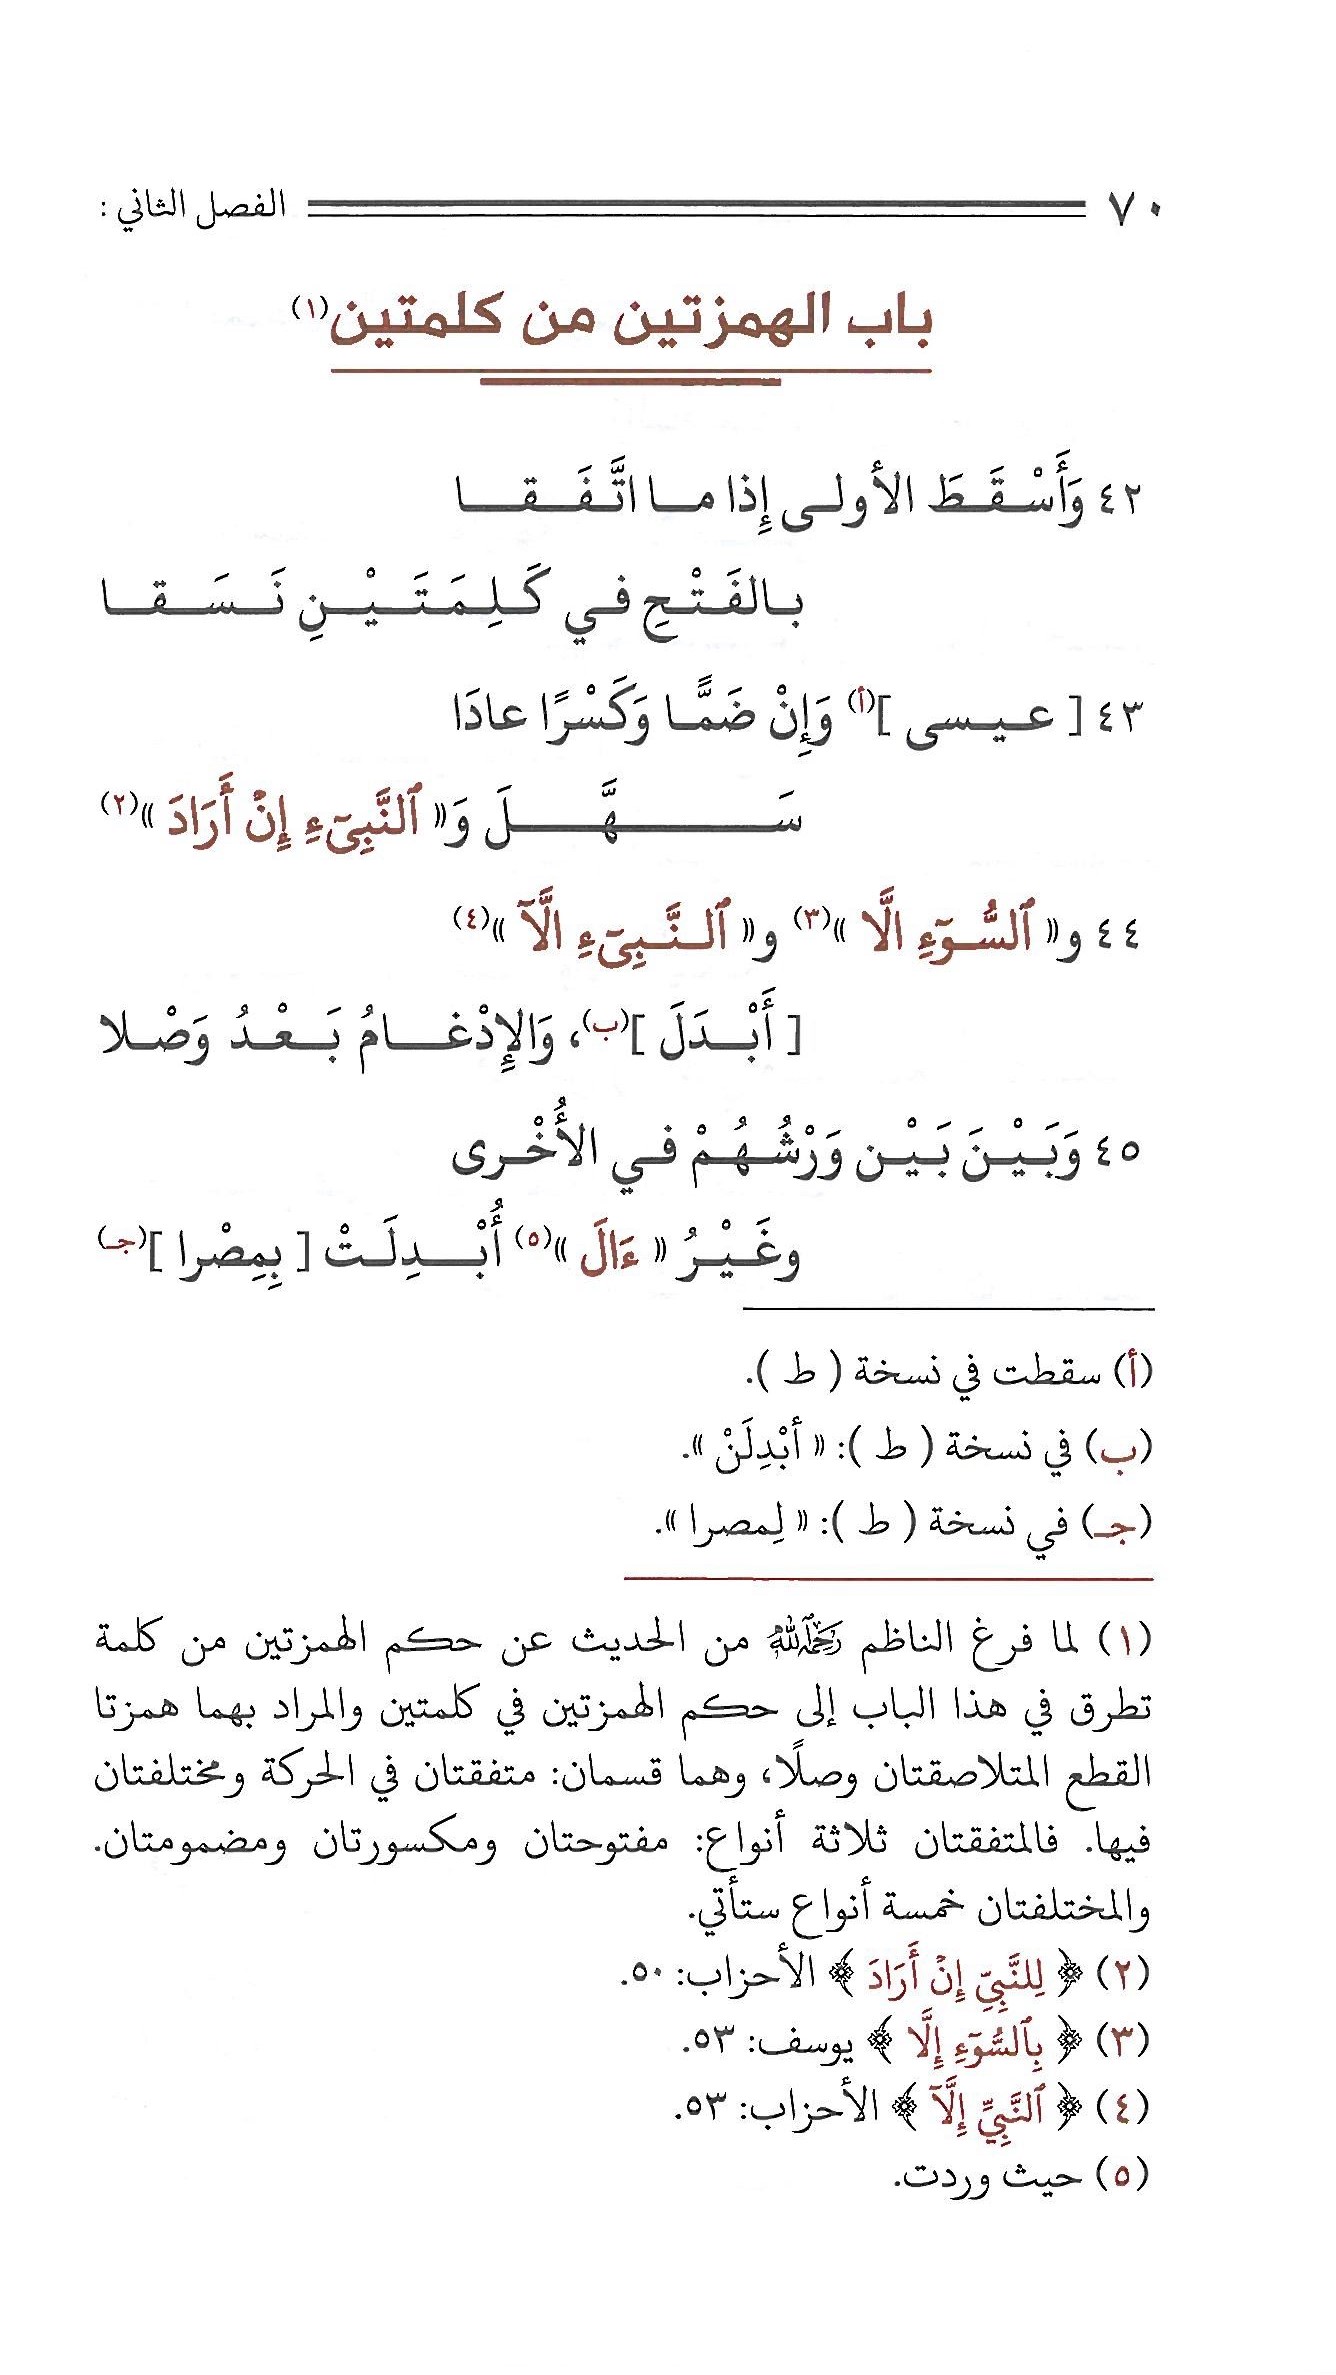 ٧٠ الفصل الثاني :
باب الهمزتين من كلمتين(١)
٤٢ وَأَسْقَطَ الأولى إِذا ما اتَّفَقا
بالفَتْحِ في كَلِمَتَيْنِ نَسَقا
٤٣ [ عيسى ](أ) وَإِنْ ضَمًّا وَكَسْرًا عادَا
سَهَّلَ وَ« ٱلنَّبِىٓءِ إِنْ أَرَادَ »(٢)
٤٤ و« ٱلسُّوٓءِ الَّا »(٣) و« ٱلنَّبِىٓءِ الَّآ »(٤)
[ أَبْدَلَ ](ب)، وَالإِدْغامُ بَعْدُ وَصْلا
٤٥ وَبَيْنَ بَيْن وَرْشُهُمْ في الأُخْرى
وغَيْرُ « ءَالَ »(٥) أُبْدِلَتْ [ بِمِصْرا ](جـ)
(أ) سقطت في نسخة ( ط ).
(ب) في نسخة ( ط ): « أبْدِلَنْ ».
(جـ) في نسخة ( ط ): « لِمصرا ».
(١) لما فرغ الناظم رَحِمَهُ ٱللَّهُ من الحديث عن حكم الهمزتين من كلمة
تطرق في هذا الباب إلى حكم الهمزتين في كلمتين والمراد بهما همزتا
القطع المتلاصقتان وصلًا، وهما قسمان: متفقتان في الحركة ومختلفتان
فيها. فالمتفقتان ثلاثة أنواع: مفتوحتان ومكسورتان ومضمومتان.
والمختلفتان خمسة أنواع ستأتي.
(٢) ﴿ لِلنَّبِيِّ إِنْ أَرَادَ ﴾ الأحزاب: ٥٠.
(٣) ﴿ بِٱلسُّوٓءِ إِلَّا ﴾ يوسف: ٥٣.
(٤) ﴿ ٱلنَّبِيِّ إِلَّآ ﴾ الأحزاب: ٥٣.
(٥) حيث وردت.